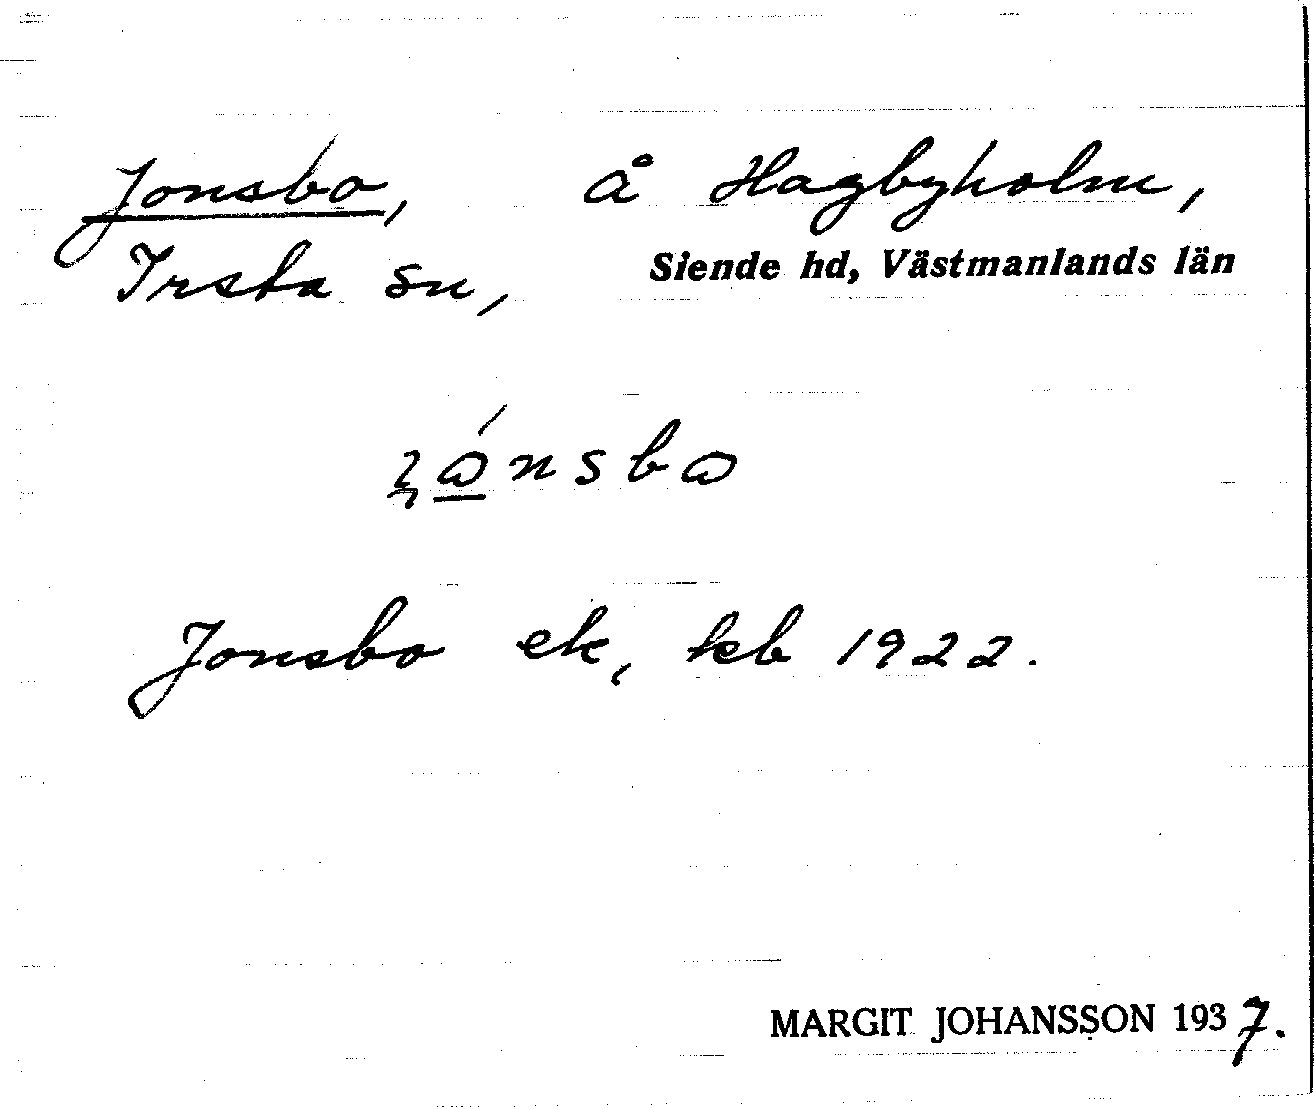 Jonsbo, å Hagbyholm,
Irsta sn, Siende hd, Västmanlands län
Jonsbo ek, kb 1922.
MARGIT JOHANSSON 1937.